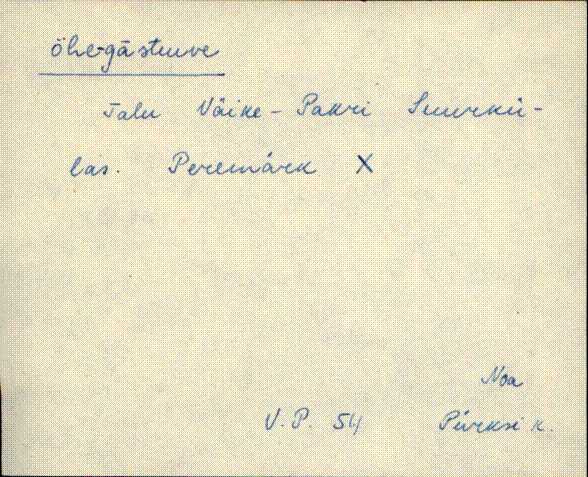 öhe-gästuve
Talu Väike-Pakri Suurkü-
las. Peremärk X
Noa
V.P. 54 Pürksi k.